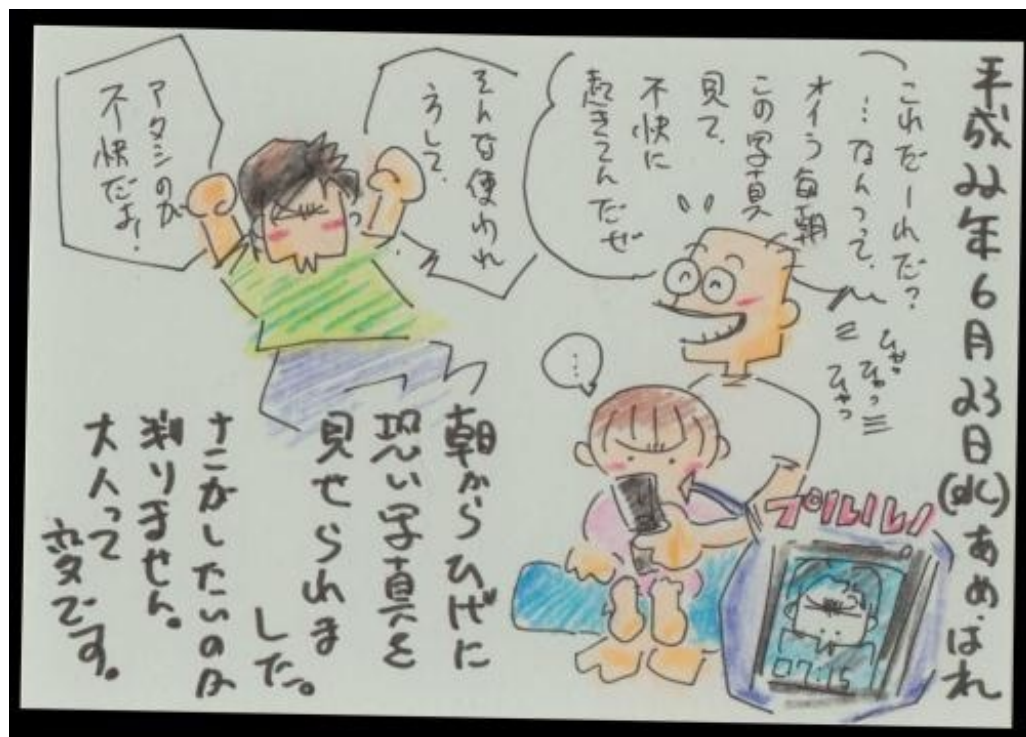 平成22年6月23日(水)あめ、はれ
これだーれだ?
…なんつって、
オイラ毎朝
この写真
見て、
不快に
起きてんだぜ
ひゃっ
ひゃっ
ひゃっ
そんな使われ
うして、
アタシのが
不快だよ!
…
プルルルルル
07:15
朝からひげに
恐い写真を
見せられま
した。
なにがしたいのか
判りません。
大人って
変です。